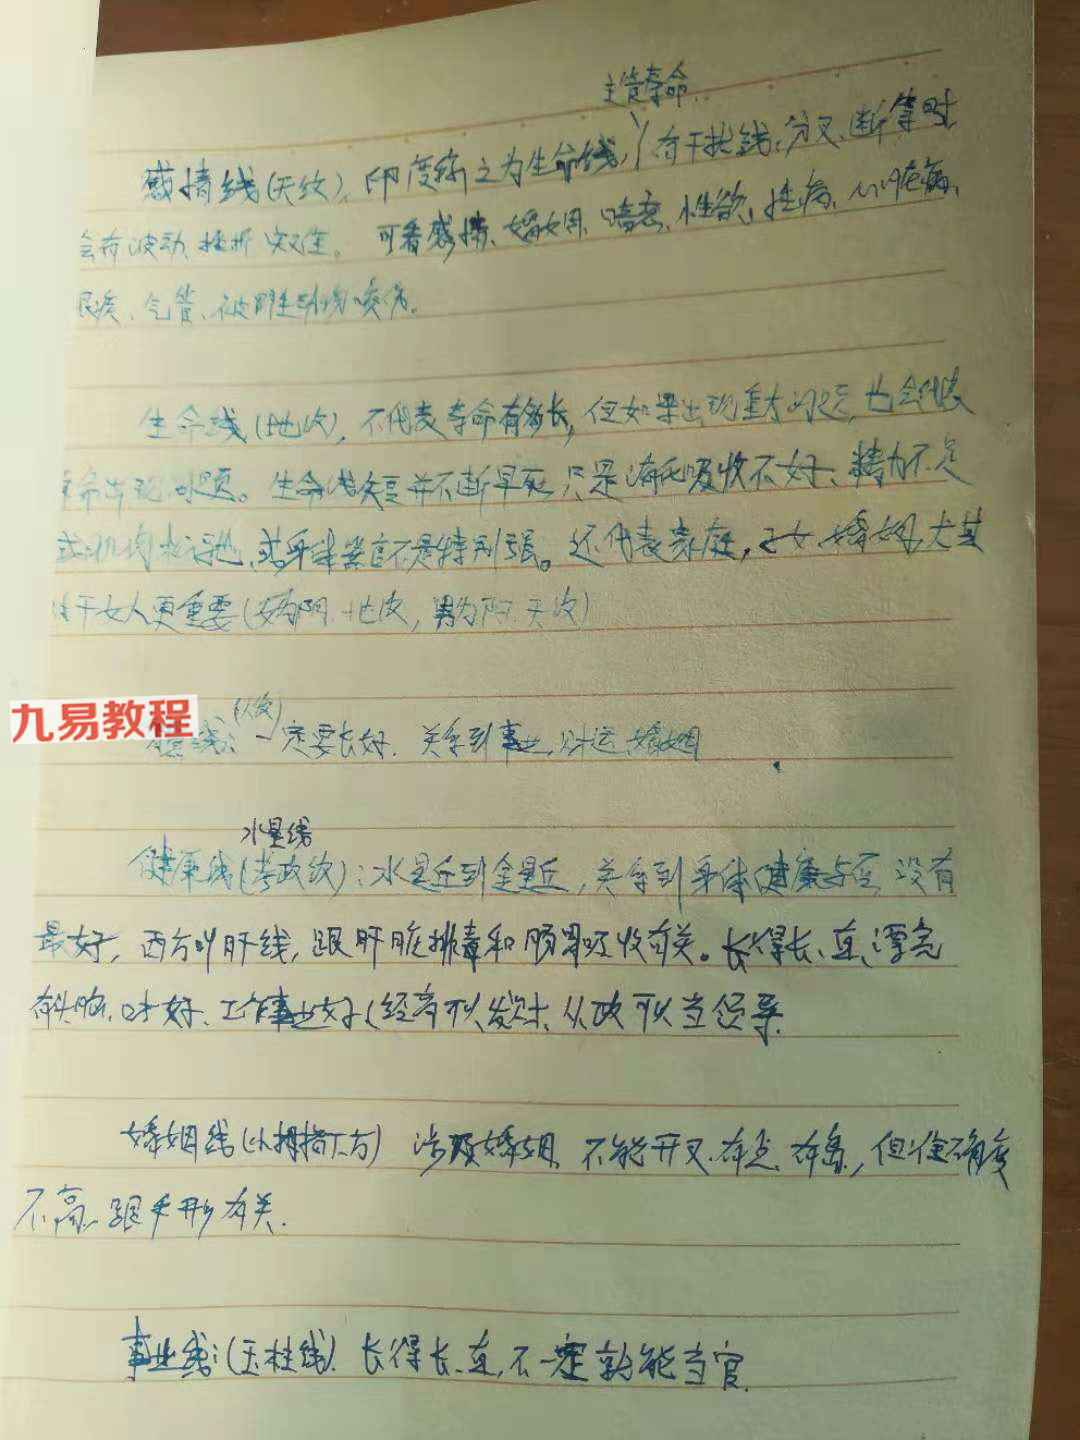 主管寿命
感情线(天纹),印度称之为生命线,有干扰线,分叉、断等时
会有波动、挫折 可看感情、婚姻、嗜恋、性欲、 心脏病、
眼疾、气管、被野生动物咬伤。
生命线(地纹),不代表寿命有多长,但如果出现重大问题,也会代表
寿命出现问题。生命线短并不断早死,只是消化吸收不好、精力不足
或肌肉松弛、或身体器官不是特别强。还代表家庭,子女,婚姻,尤其
对于女人更重要(女为阴、地纹,男为阳、天纹)
(人纹)
九易教程
线:一定要长好,关系到事业、财运、婚姻
水星线
健康线(考政纹):水星丘到金星丘,关系到身体健康与否,没有
最好,西方叫肝线,跟肝脏排毒和肠胃吸收有关。长得长、直、漂亮
有头脑、口才好、工作事业好(经商可以发财、从政可以当领导
婚姻线(小拇指下方) 涉及婚姻 不能开叉、有 有岛,但准确度
不高,跟手形有关.
事业线:(玉柱线) 长得长、直,不一定就能当官.